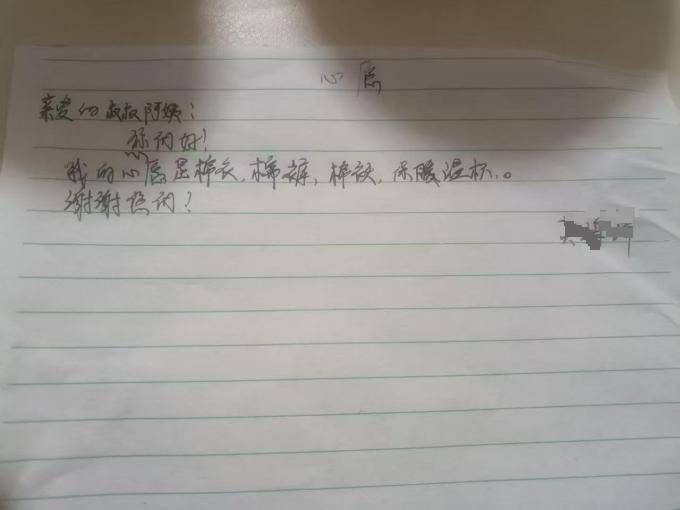 心愿
亲爱的叔叔阿姨：
你们好！
我的心愿是棉衣，棉裤，棉被，保暖温杯。
谢谢你们！